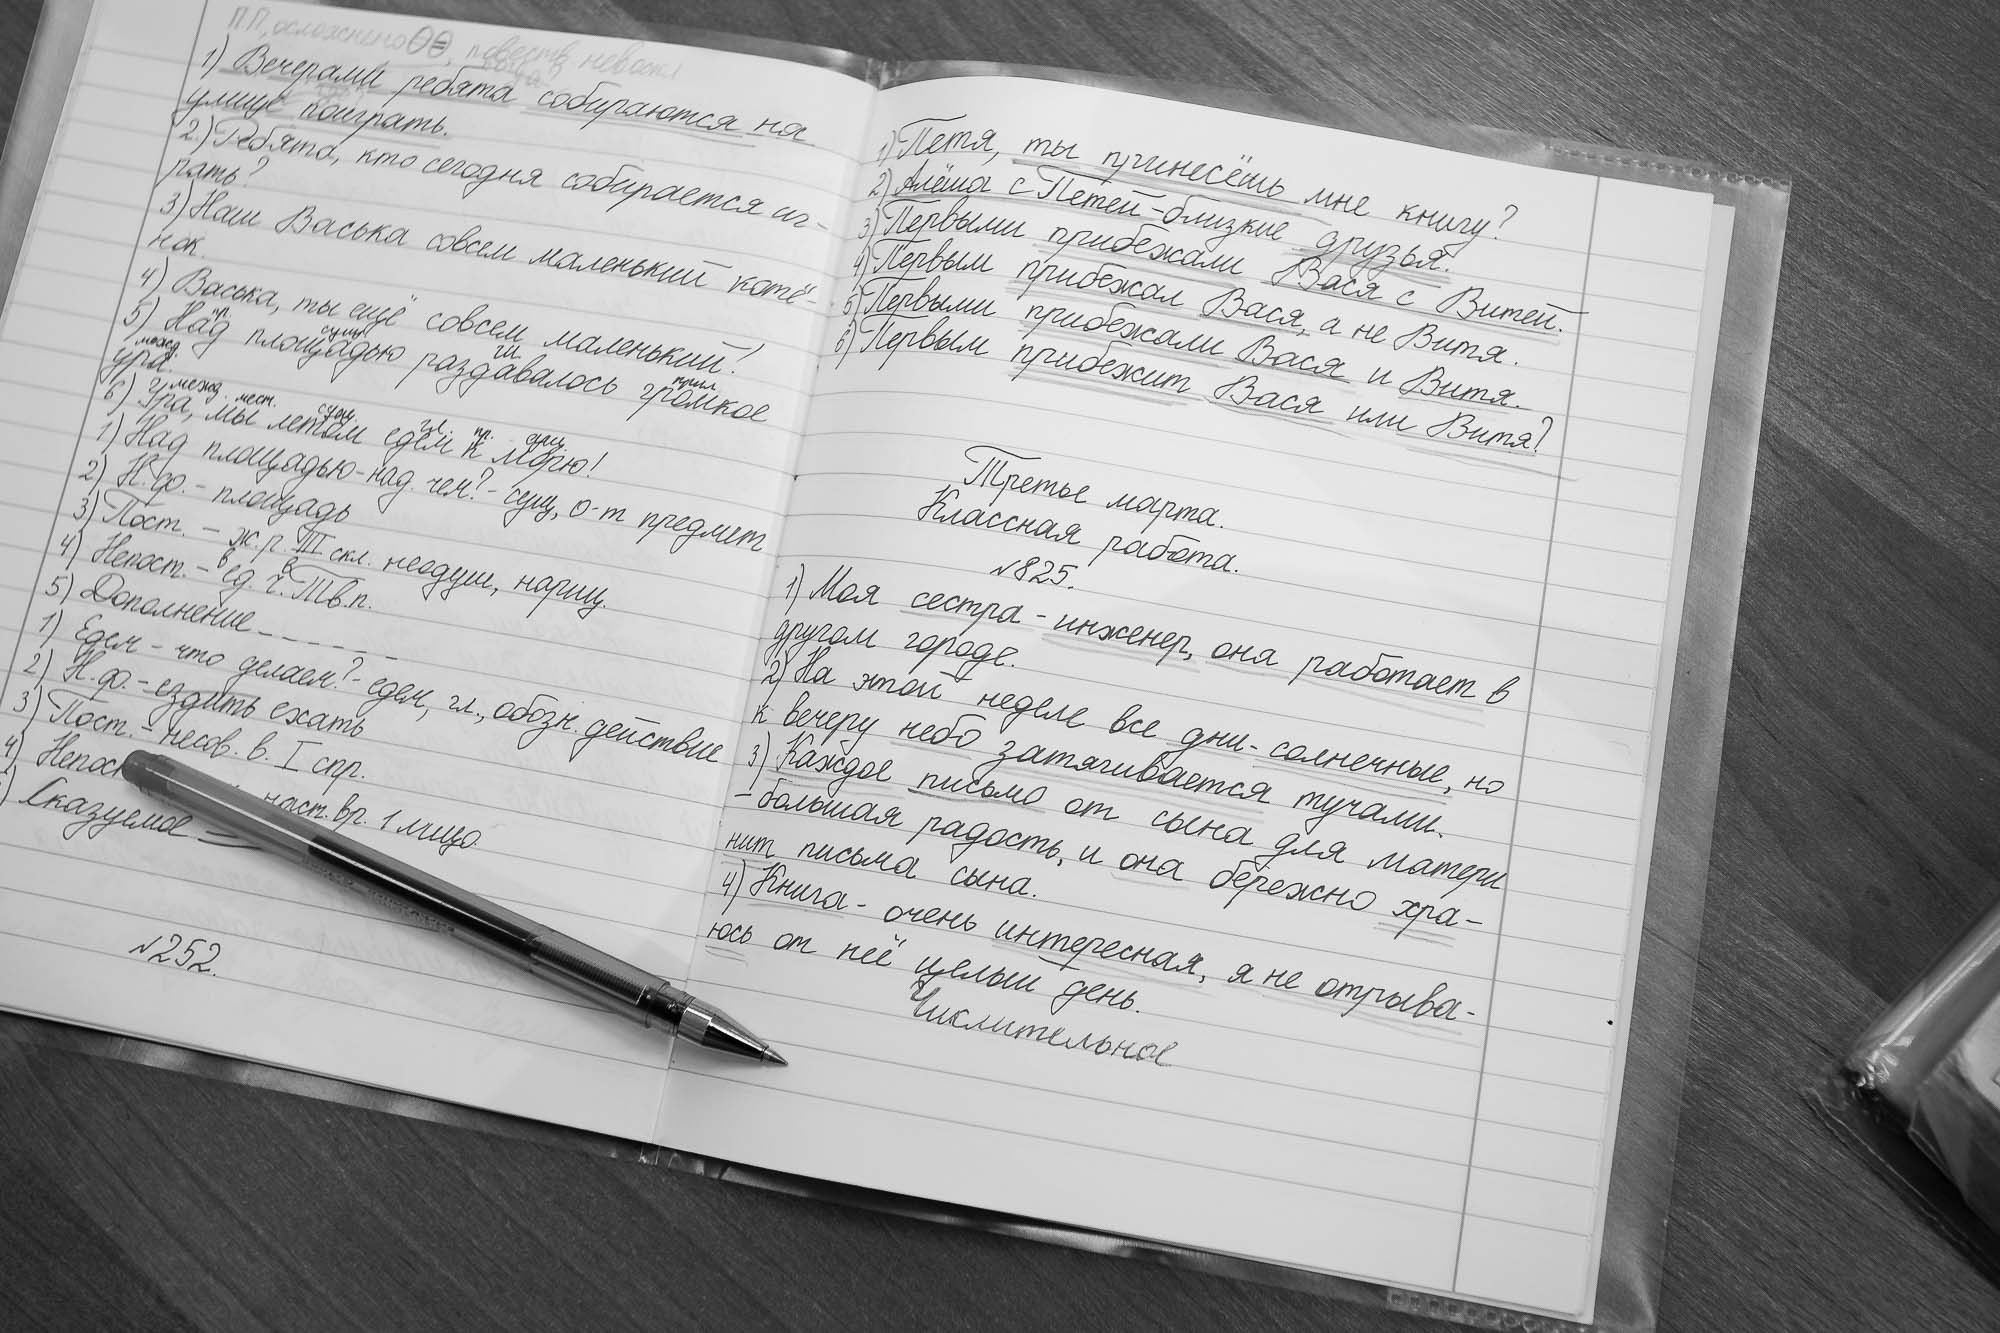 П.П, осложнено , повеств. невоскл
1) Вечерами ребята собираются на
улице поиграть.
2.) Ребята, кто сегодня собирается иг-
рать?
3) Наш Васька совсем маленький котё-
нок.
4) Васька, ты ещё совсем маленький!
пр. сущ. гл. прил
5) Над площадью раздавалось громкое
межд.
ура.
межд. мест. сущ. гл. пр. сущ
6) Ура, мы летом едем к морю!
1) Над площадью - над чем? - сущ, о-т предмет
2) Н.ф. - площадь
3) Пост. - ж.р. III скл. неодуш, нариц.
4) Непост. - в ед. ч. в Тв.п.
5) Дополнение
1) Едем - что делаем? - едем, гл., обозн. действие
2) Н.ф. - ездить ехать
3) Пост. - несов. в. I спр.
4) Непост наст. вр. 1 лицо.
5) Сказуемое
№252.
1) Петя, ты принесёшь мне книгу?
2) Алёша с Петей - близкие друзья.
3) Первыми прибежали Вася с Витей.
4) Первым прибежал Вася, а не Витя.
5) Первыми прибежали Вася и Витя.
6) Первым прибежит Вася или Витя?
Третье марта.
Классная работа.
№825.
1) Моя сестра - инженер, она работает в
другом городе.
2) На этой неделе все дни - солнечные, но
к вечеру небо затягивается тучами.
3) Каждое письмо от сына для матери
- большая радость, и она бережно хра-
нит письма сына.
4) Книга - очень интересная, я не отрыва-
юсь от неё целый день.
Числительное